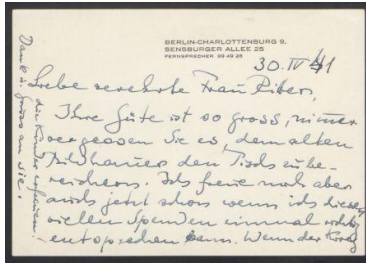 BERLIN-CHARLOTTENBURG 9,
SENSBURGER ALLEE 25
FERNSPRECHER 99 49 25
30. IV 41
Liebe verehrte Frau
Ihre Güte ist so gross, nimmer
vergessen Sie es, dem alten
Bildhauer den Tisch zu be-
reichern. Ich freue mich aber
auch jetzt schon wenn ich diesen
vielen Spenden einmal richtig
entsprechen kann. Wenn der Krieg
die Kinder erfreuen!
Dank u. Gruss an Sie.